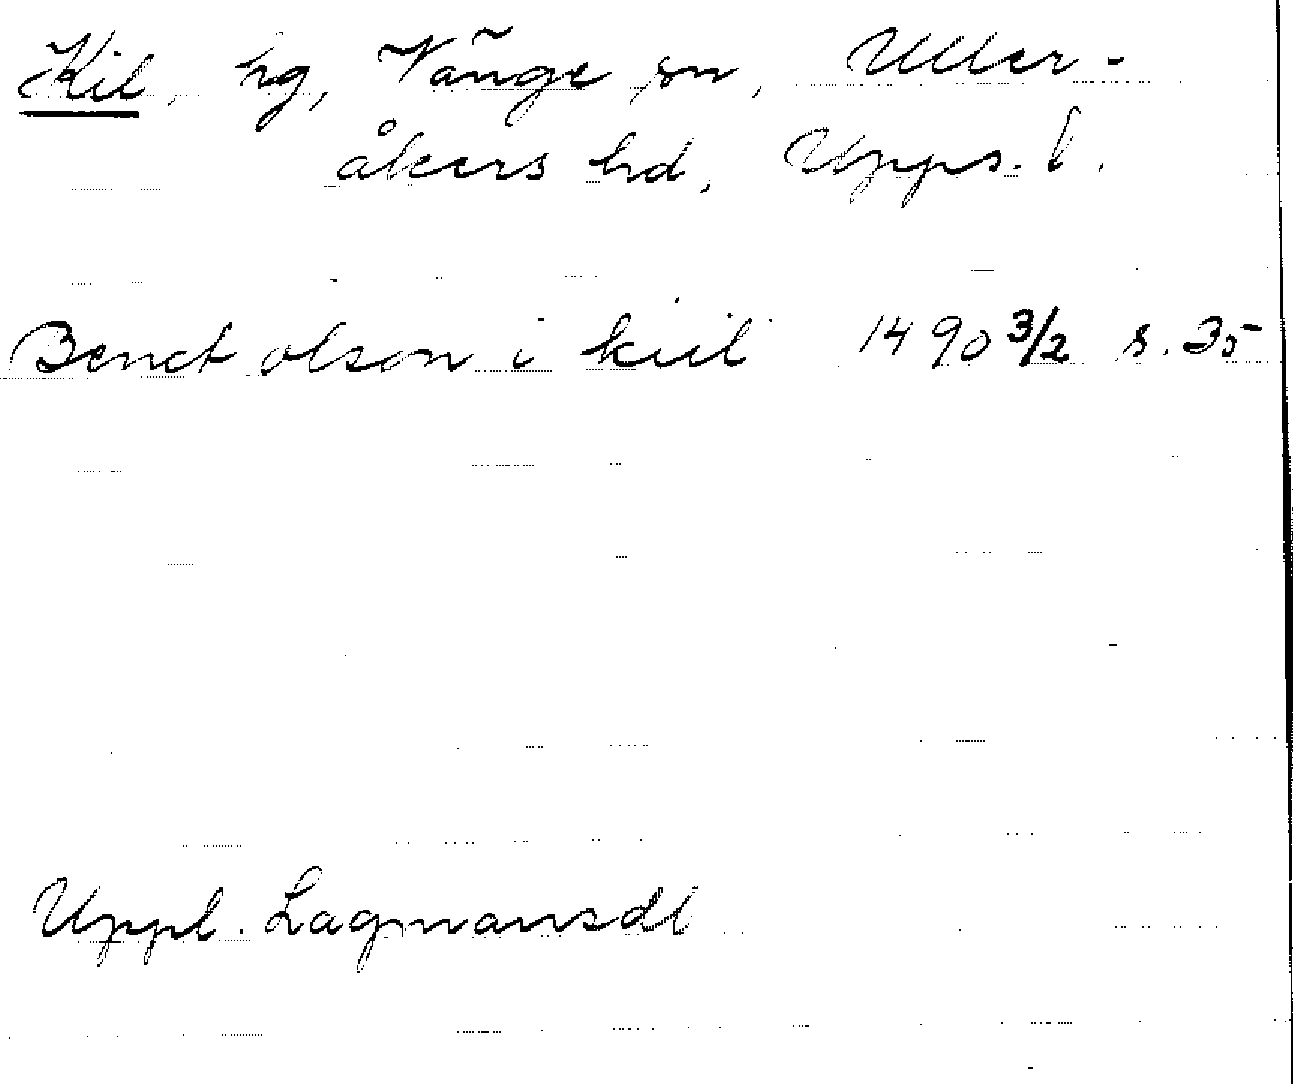 Kil, hg, Vänge sn, Uller-
åkers hd, Upps. l.
Benct olson i kiil 1490 3/2 s. 35
Uppl. Lagmansdb